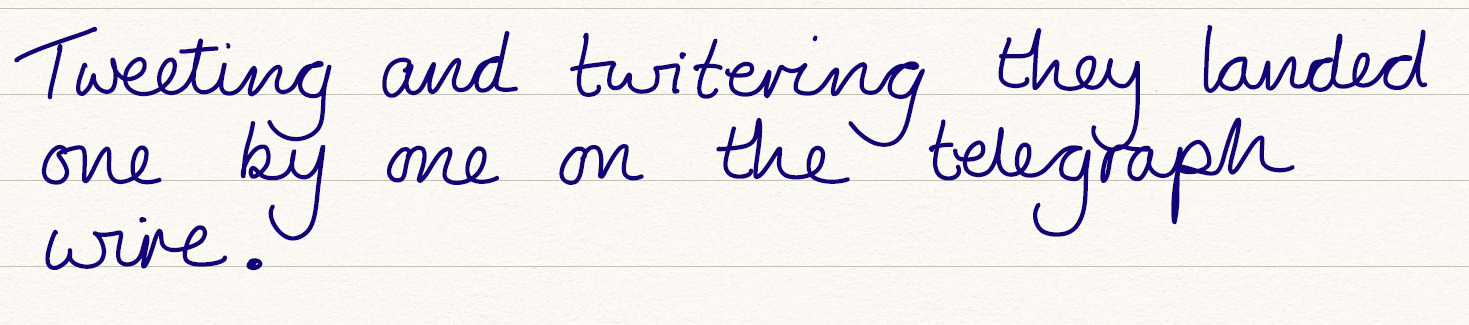 Tweeting and twitering they landed
one by one on the telegraph
wire.